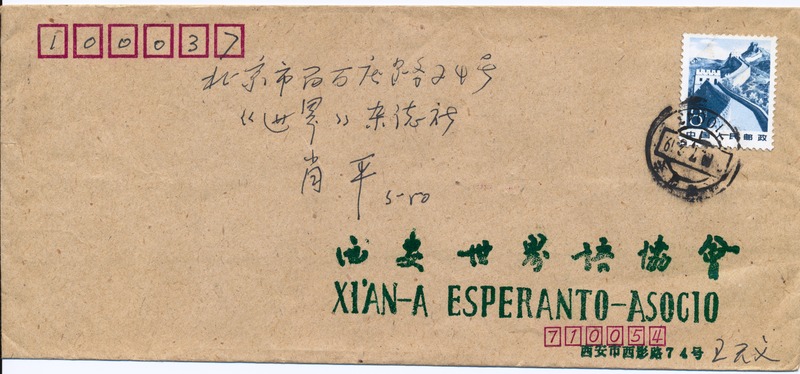 100037
北京市百万庄路24号
《世界》杂志社
肖平
中国人民邮政
西安世界语協會
XI'AN-A ESPERANTO-ASOCIO
710054
西安市西影路74号 王天义